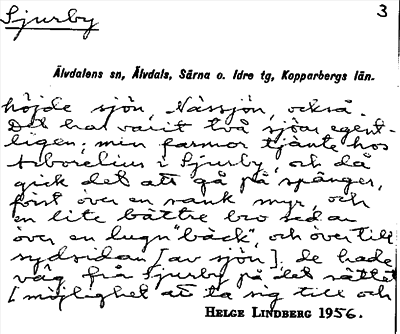 Sjurby 3
Älvdalens sn, Älvdals, Särna o. Idre tg, Kopparbergs län.
höjde sjön, Nässjön, också.
Det har varit två sjöar egent-
ligen, min farmor tjänte hos
Arborelius i Sjurby, och då
gick det att gå på spänger,
först över en rank myr, och
en lite bättre bro sedan
över en lugn "bäck", och över till
sydsidan [av sjön]. de hade
väg från Sjurby på det sättet
[möjlighet att ta sig till och
HELGE LINDBERG 1956.